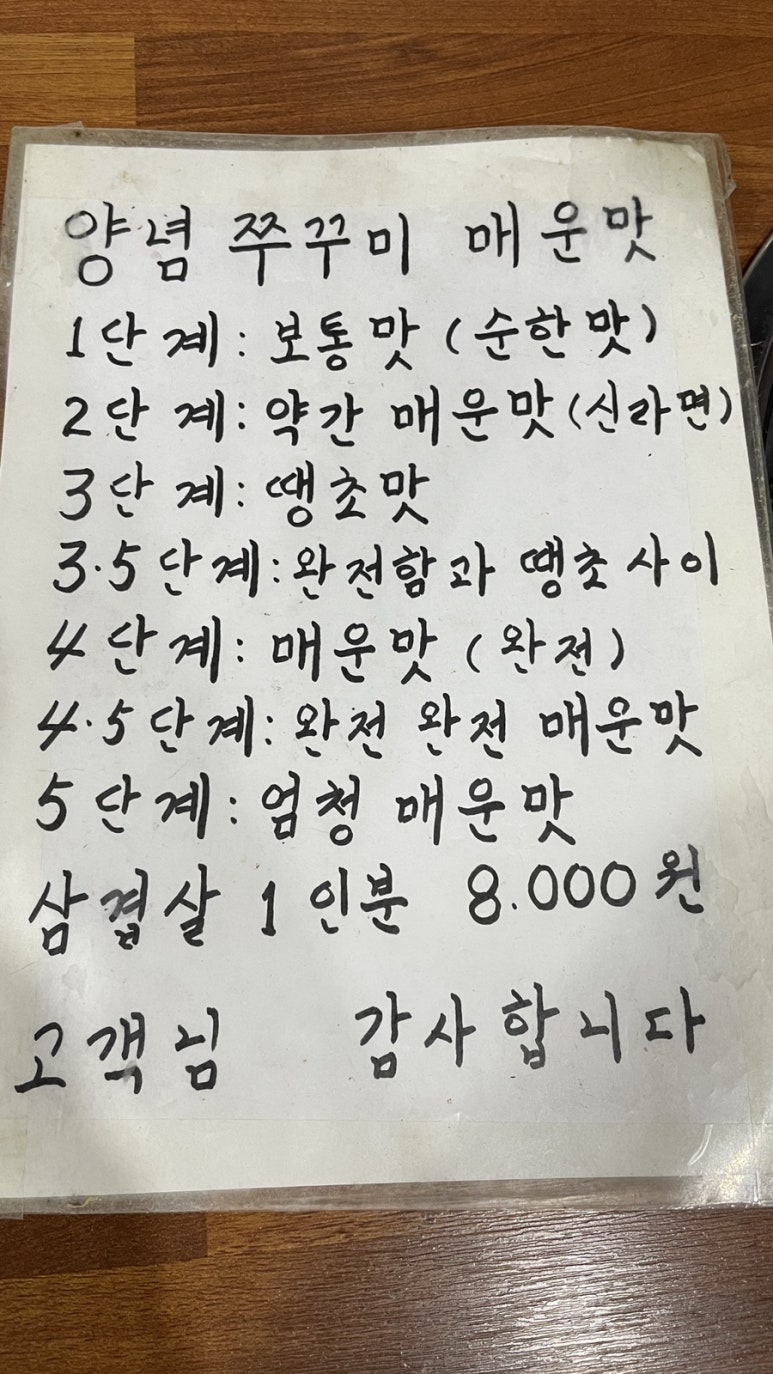 양념 쭈꾸미 매운맛
1단계: 보통맛 (순한맛)
2단계: 약간 매운맛 (신라면)
3단계: 땡초맛
3.5단계: 완전함과 땡초 사이
4단계: 매운맛 (완전)
4.5단계: 완전 완전 매운맛
5단계: 엄청 매운맛
삼겹살 1인분 8.000원
고객님 감사합니다